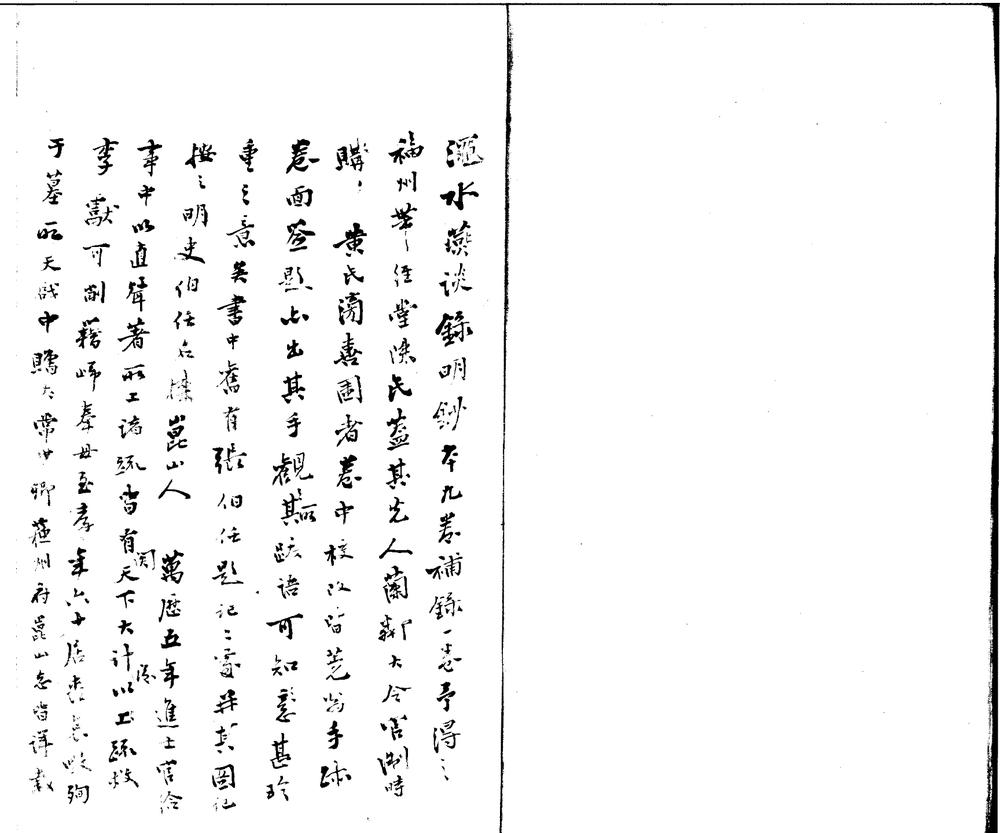 澠水燕談錄明鈔本九卷補錄一卷予得之
福州帶經堂陳氏蓋其先人蘭鄰大令官浙時
購 黃氏滂喜園者卷中校改皆蕘翁手跡
卷面簽題亦出其手觀其所跋語可知意甚珍
重之意矣書中舊有張伯任題記二處并其圖記
按之明史伯任名棟崑山人 萬歷五年進士官給
事中以直聲著所上諸疏皆有關天下大計以上疏救
李獻可削籍歸奉母至孝年六十居喪哀毀殉
于墓所天啟中贈太常少卿蘇州府崑山志皆詳載